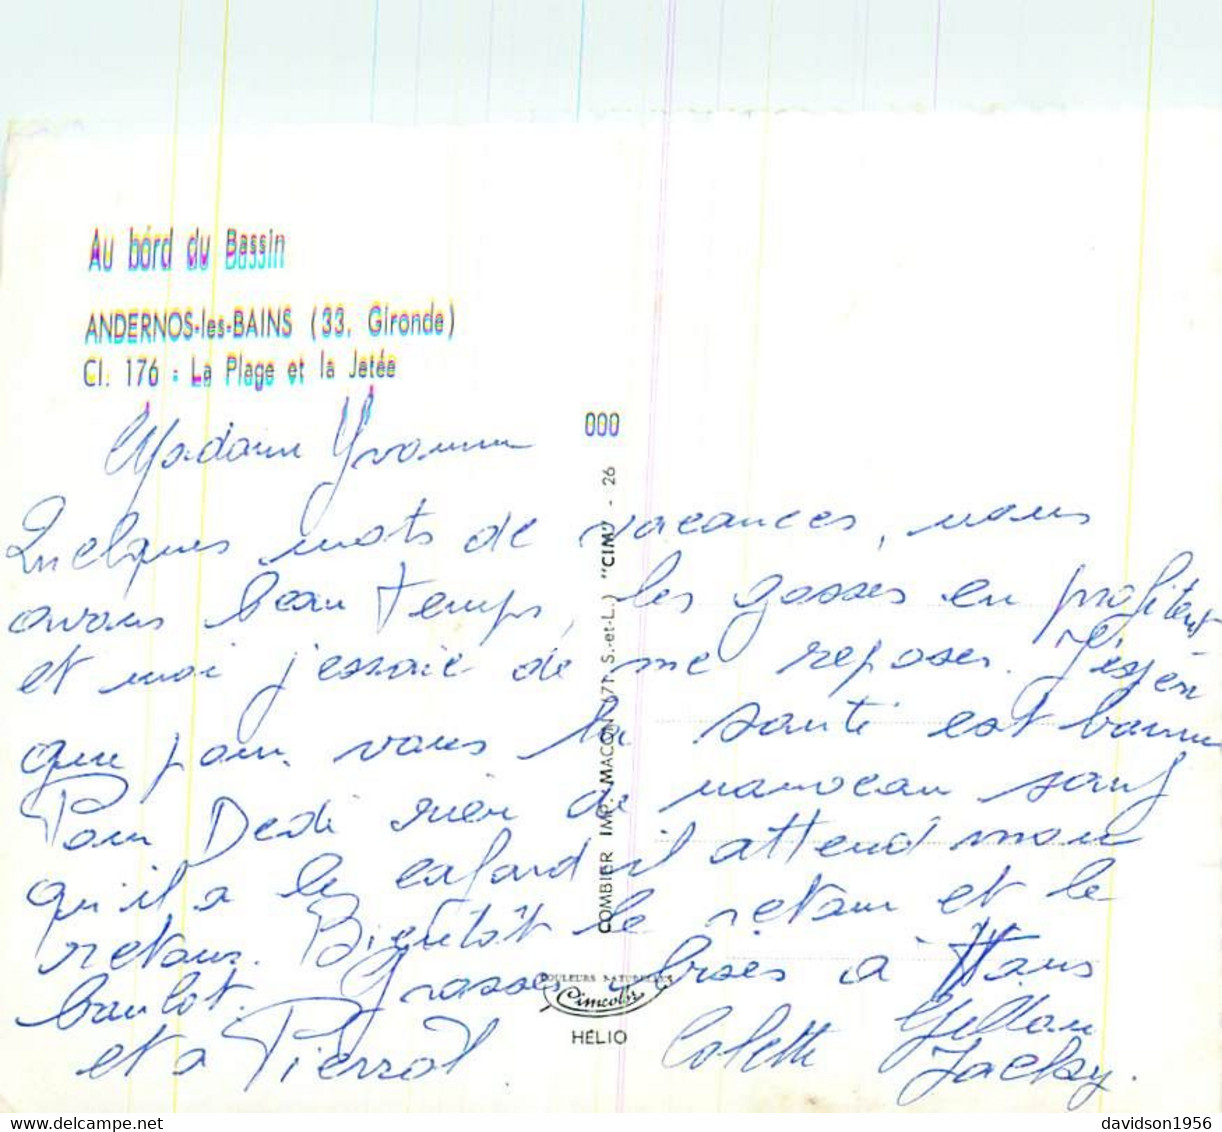 Au bord du Bassin
ANDERNOS-les-BAINS (33. Gironde)
CI. 176 - La Plage et la Jetée
000
Madame Yvonne
Quelques mots de vacances, nous
avons beau temps, les gosses en profitent
et moi j'essaie de me reposer. J'espère
que pour vous la santé est bonne
Pour Dédé rien de nouveau sauf
qu'il a le cafard il attend mon
retour. Bientôt le retour et le
boulot. Grosses bises à Tous
et a Pierrot Colette
Jacky.
COMBIER IMP. MACON (71 S.-et-L.) "CIM" - 26
COULEURS NATURELLES
Cimcolor
HÉLIO
delcampe.net
davidson1956